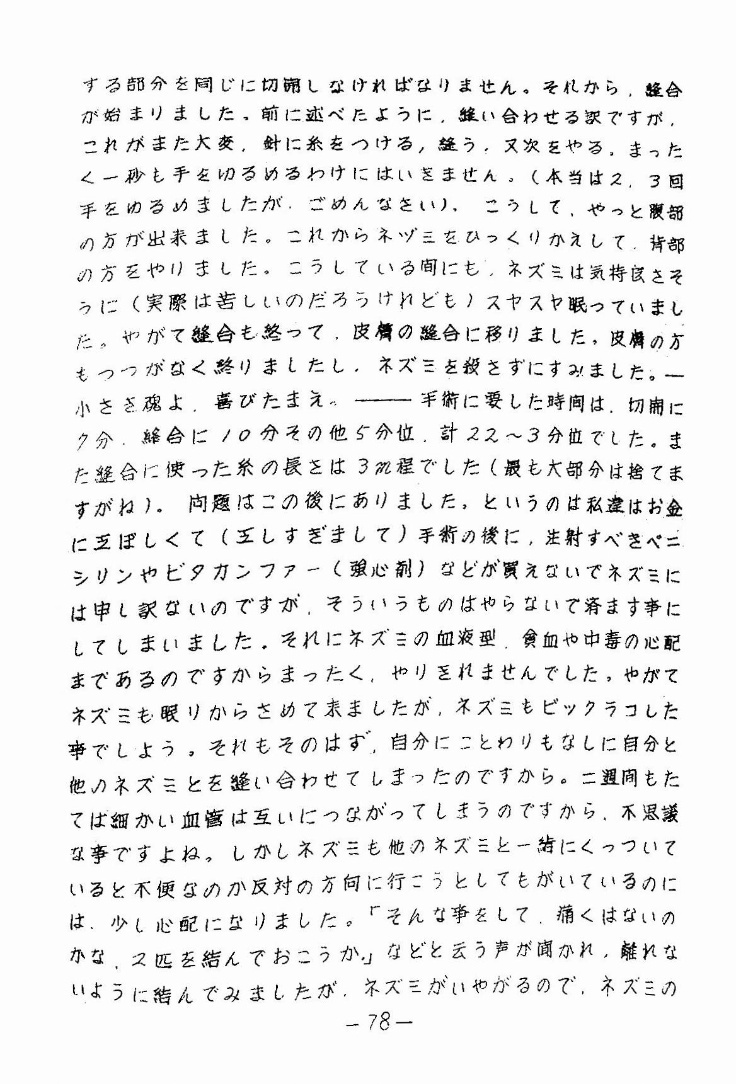 する部分を同じに切開しなければなりません。それから、縫合
が始まりました。前に述べたように、縫い合わせる訳ですが、
これがまた大変、針に糸をつける,縫う、又次をやる。まった
く一秒も手をゆるめるわけにはいきません。(本当は2、3回
手をゆるめましたが、ごめんなさい)、こうして、やっと腹部
の方が出来ました。これからネヅミをひっくりかえして、背部
の方をやりました。こうしている間にも、ネズミは気持良さそ
うに(実際は苦しいのだろうけれども)スヤスヤ眠っていまし
た。やがて縫合も終って、皮膚の縫合に移りました。皮膚の方
もつつがなく終りましたし、ネズミを殺さずにすみました。―
小さき魂よ、喜びたまえ。―――手術に要した時間は、切開に
7分、縫合に10分その他5分位、計22〜3分位でした。ま
た縫合に使った糸の長さは3m程でした(最も大部分は捨てま
すがね)。問題はこの後にありました。というのは私達はお金
に乏ぼしくて(乏しすぎまして)手術の後に、注射すべきペニ
シリンやビタカンファー(強心剤)などが買えないでネズミに
は申し訳ないのですが、そういうものはやらないで済ます事に
してしまいました。それにネズミの血液型、貧血や中毒の心配
まであるのですからまったく、やりきれませんでした。やがて
ネズミも眠りからさめて来ましたが、ネズミもビックラコした
事でしよう。それもそのはず、自分にことわりもなしに自分と
他のネズミとを縫い合わせてしまったのですから。二週間もた
てば細かい血管は互いにつながってしまうのですから、不思議
な事ですよね。しかしネズミも他のネズミと一緒にくっついて
いると不便なのか反対の方向に行こうとしてもがいているのに
は、少し心配になりました。「そんな事をして、痛くはないの
かな、2匹を結んでおこうか。」などと云う声が聞かれ、離れな
いように結んでみましたが、ネズミがいやがるので、ネズミの
―78―